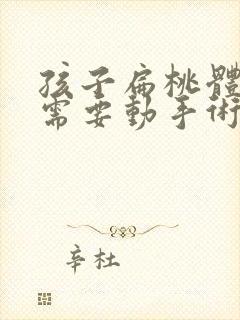 孩子扁桃體
需要動手術
辛杜